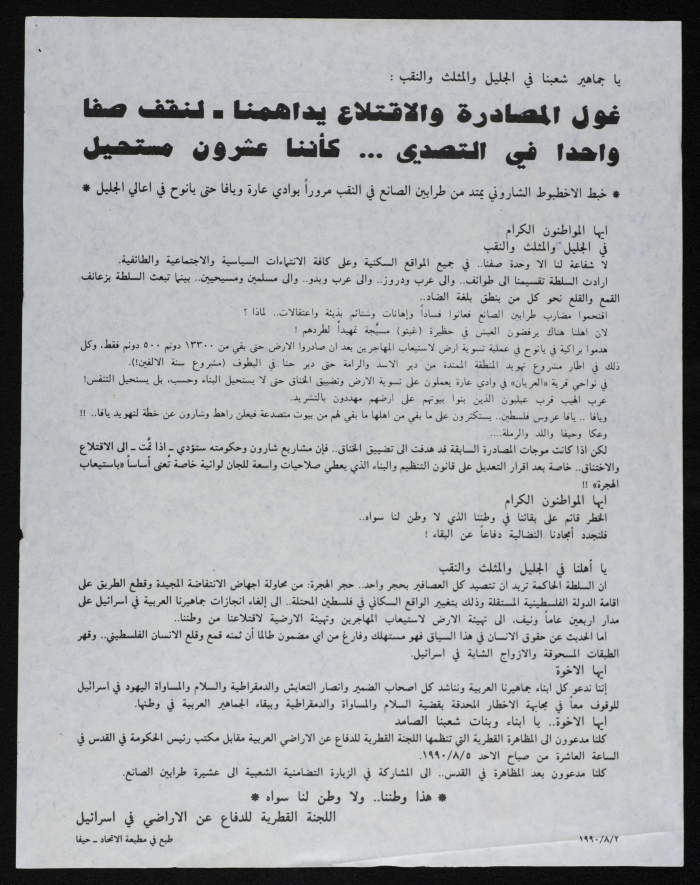 يا جماهير شعبنا في الجليل والمثلث والنقب :
غول المصادرة والاقتلاع يداهمنا ـ لنقف صفا
واحدا في التصدي ... كأننا عشرون مستحيل
* خبط الاخطبوط الشاروني يمتد من طرابين الصانع في النقب مروراً بوادي عارة ويافا حتى يانوح في اعالي الجليل *
ايها المواطنون الكرام
في الجليل والمثلث والنقب
لا شفاعة لنا الا وحدة صفنا.. في جميع المواقع السكنية وعلى كافة الانتماءات السياسية والاجتماعية والطائفية.
ارادت السلطة تقسيمنا الى طوائف.. والى عرب ودروز.. والى عرب وبدو.. والى مسلمين ومسيحيين.. بينما تبعث السلطة بزعانف
القمع والقلع نحو كل من ينطق بلغة الضاد..
اقتحموا مضارب طرابين الصانع فعاثوا فساداً وإهانات وشتائم بذيئة واعتقالات.. لماذا ؟
لان اهلنا هناك يرفضون العيش في حظيرة (غيتو) مسيّجة تمهيداً لطردهم !
هدموا براكية في يانوح في عملية تسوية ارض لاستيعاب المهاجرين بعد ان صادروا الارض حتى بقي من ١٣٣٠٠ دونم ٥٠٠ دونم فقط، وكل
ذلك في اطار مشروع تهويد المنطقة الممتدة من دير الاسد والرامة حتى دير حنا في البطوف (مشروع سنة الالفين!).
في نواحي قرية «العريان» في وادي عارة يعملون على تسوية الارض وتضييق الخناق حتى لا يستحيل البناء وحسب، بل يستحيل التنفس!
عرب الهيب قرب عبلين الذين بنوا بيوتهم على ارضهم مهددون بالتشريد.
ويافا .. يافا عروس فلسطين.. يستكثرون على ما بقي من اهلها ما بقي لهم من بيوت متصدعة فيعلن راهط وشارون عن خطة لتهويد يافا.. !!
وعكا وحيفا واللد والرملة....
لكن اذا كانت موجات المصادرة السابقة قد هدفت الى تضييق الخناق.. فإن مشاريع شارون وحكومته ستؤدي ـ اذا تمّت ـ الى الاقتلاع
والاختناق.. خاصة بعد اقرار التعديل على قانون التنظيم والبناء الذي يعطي صلاحيات واسعة للجان لوائية خاصة تُعنى أساساً «باستيعاب
الهجرة» !!
ايها المواطنون الكرام
الخطر قائم على بقائنا في وطننا الذي لا وطن لنا سواه..
فلنجدد أمجادنا النضالية دفاعاً عن البقاء !
يا أهلنا في الجليل والمثلث والنقب
ان السلطة الحاكمة تريد ان تتصيد كل العصافير بحجر واحد.. حجر الهجرة: من محاولة اجهاض الانتفاضة المجيدة وقطع الطريق على
اقامة الدولة الفلسطينية المستقلة وذلك بتغيير الواقع السكاني في فلسطين المحتلة.. الى إلغاء انجازات جماهيرنا العربية في اسرائيل على
مدار اربعين عاماً ونيف، الى تهيئة الارض لاستيعاب المهاجرين وتهيئة الارضية لاقتلاعنا من وطننا..
اما الحديث عن حقوق الانسان في هذا السياق فهو مستهلك وفارغ من اي مضمون طالما أن ثمنه قمع وقلع الانسان الفلسطيني.. وقهر
الطبقات المسحوقة والازواج الشابة في اسرائيل.
ايها الاخوة
إننا ندعو كل ابناء جماهيرنا العربية ونناشد كل اصحاب الضمير وانصار التعايش والدمقراطية والسلام والمساواة اليهود في اسرائيل
للوقوف معاً في مجابهة الاخطار المحدقة بقضية السلام والمساواة والدمقراطية وببقاء الجماهير العربية في وطنها.
ايها الاخوة.. يا ابناء وبنات شعبنا الصامد
كلنا مدعوون الى المظاهرة القطرية التي تنظمها اللجنة القطرية للدفاع عن الاراضي العربية مقابل مكتب رئيس الحكومة في القدس في
الساعة العاشرة من صباح الاحد ١٩٩٠/٨/٥.
كلنا مدعوون بعد المظاهرة في القدس.. الى المشاركة في الزيارة التضامنية الشعبية الى عشيرة طرابين الصانع.
* هذا وطننا.. ولا وطن لنا سواه *
اللجنة القطرية للدفاع عن الاراضي في اسرائيل
١٩٩٠/٨/٢
طبع في مطبعة الاتحاد ـ حيفا